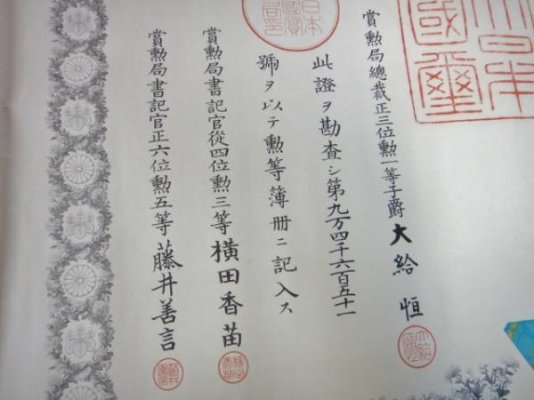 賞勲局總裁正三位勲一等子爵大給恒
此證ヲ勘査シ第九万四千六百五十一
號ヲ以テ勲等簿冊ニ記入ス
賞勲局書記官從四位勲三等横田香苗
賞勲局書記官正六位勲五等藤井善言